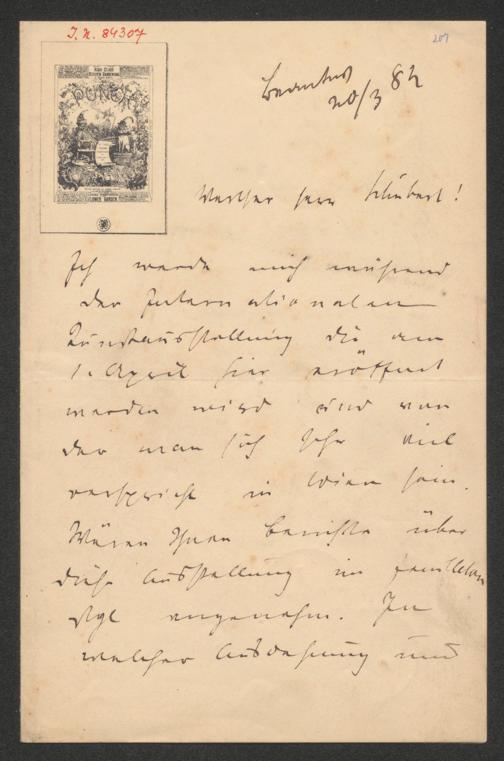 J.N. 84307
207
PUNCH
20/3 82
Werther Herr Schubert!
Ich werde mich während
der Internationalen
Kunstausstellung die am
1. April hier eröffnet
werden wird und von
der man sich sehr viel
verspricht in Wien sein.
Wären Ihnen Berichte über
diese Ausstellung im Feuilleton
styl angenehm. In
welcher Ausdehnung und